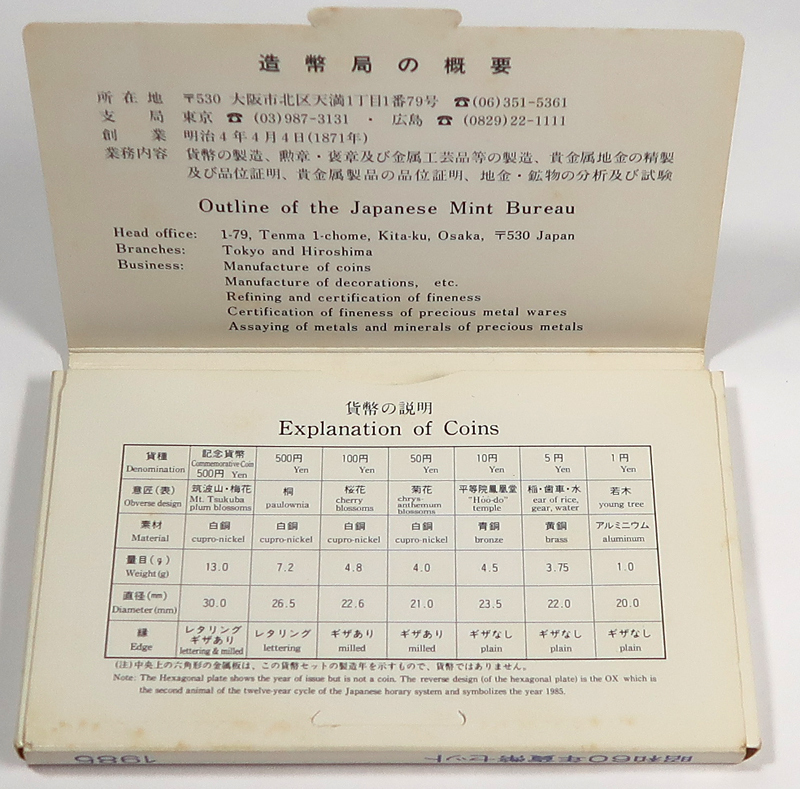 造幣局の概要
所在地 〒530 大阪市北区天満1丁目1番79号 ☎(06)351-5361
支局 東京 ☎ (03)987-3131 ・ 広島 ☎ (0829)22-1111
創業 明治4年4月4日(1871年)
業務内容 貨幣の製造、勲章・褒章及び金属工芸品等の製造、貴金属地金の精製
及び品位証明、貴金属製品の品位証明、地金・鉱物の分析及び試験
Outline of the Japanese Mint Bureau
Head office: 1-79, Tenma 1-chome, Kita-ku, Osaka, 〒530 Japan
Branches: Tokyo and Hiroshima
Business: Manufacture of coins
Manufacture of decorations, etc.
Refining and certification of fineness
Certification of fineness of precious metal wares
Assaying of metals and minerals of precious metals
貨幣の説明
Explanation of Coins
貨種 記念貨幣 500円 100円 50円 10円 5円 1円
Denomination Commemorative Coin 500円 Yen Yen Yen Yen Yen Yen Yen
意匠(表) 筑波山・梅花 桐 桜花 菊花 平等院鳳凰堂 稲・歯車・水 若木
Obverse design Mt. Tsukuba plum blossoms paulownia cherry blossoms chrysanthemum blossoms "Hōō-do" temple ear of rice, gear, water young tree
素材 白銅 白銅 白銅 白銅 青銅 黄銅 アルミニウム
Material cupro-nickel cupro-nickel cupro-nickel cupro-nickel bronze brass aluminum
量目(g) Weight(g) 13.0 7.2 4.8 4.0 4.5 3.75 1.0
直径(mm) Diameter(mm) 30.0 26.5 22.6 21.0 23.5 22.0 20.0
縁 レタリング ギザあり レタリング ギザあり ギザあり ギザなし ギザなし ギザなし
Edge lettering & milled lettering milled milled plain plain plain
(注)中央上の六角形の金属板は、この貨幣セットの製造年を示すもので、貨幣ではありません。
Note: The Hexagonal plate shows the year of issue but is not a coin. The reverse design (of the hexagonal plate) is the OX which is
the second animal of the twelve-year cycle of the Japanese horary system and symbolizes the year 1985.
昭和60年貨幣セット 1985